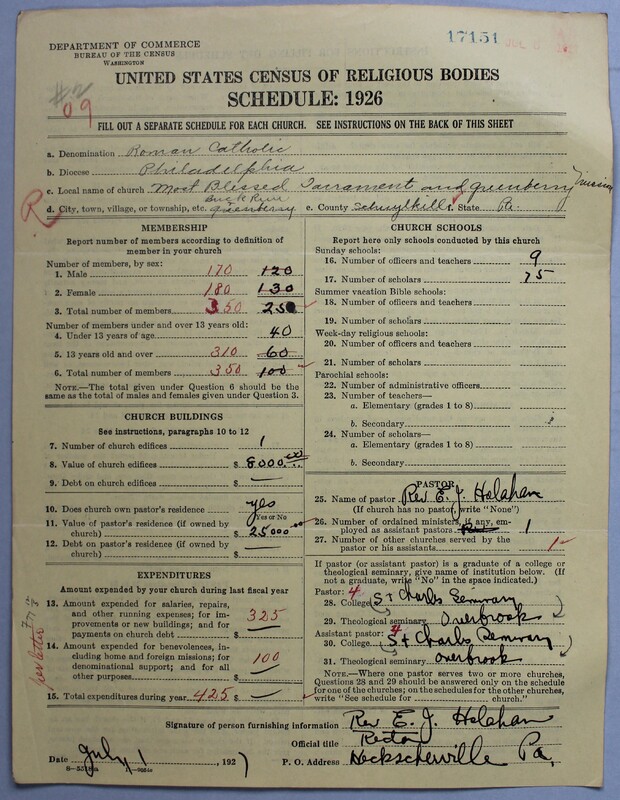 DEPARTMENT OF COMMERCE
BUREAU OF THE CENSUS
WASHINGTON
17151
#2
09
UNITED STATES CENSUS OF RELIGIOUS BODIES
SCHEDULE: 1926
FILL OUT A SEPARATE SCHEDULE FOR EACH CHURCH. SEE INSTRUCTIONS ON THE BACK OF THIS SHEET
a. Denomination Roman Catholic
b. Diocese Philadelphia
c. Local name of church Most Blessed Sarrament and greenberry
R
d. City, town, village, or township, etc. Buck Run greenberry e. County Schuylkill f. State Pa.
MEMBERSHIP
Report number of members according to definition of
member in your church
Number of members, by sex:
1. Male 170 120
2. Female 180 130
3. Total number of members 350 250
Number of members under and over 13 years old:
4. Under 13 years of age 40
5. 13 years old and over 310 60
6. Total number of members 350 100
NOTE.—The total given under Question 6 should be the
same as the total of males and females given under Question 3.
CHURCH BUILDINGS
See instructions, paragraphs 10 to 12
7. Number of church edifices 1
8. Value of church edifices $ 8000.00
9. Debt on church edifices $ —
10. Does church own pastor's residence yes
Yes or No
11. Value of pastor's residence (if owned by
church) $ 25000
12. Debt on pastor's residence (if owned by
church) $ —
EXPENDITURES
Amount expended by your church during last fiscal year
13. Amount expended for salaries, repairs,
and other running expenses; for im-
provements or new buildings; and for
payments on church debt $ 325
14. Amount expended for benevolences,
including home and foreign missions; for
denominational support; and for all
other purposes $ 100
15. Total expenditures during year 425 $ —
per letter
CHURCH SCHOOLS
Report here only schools conducted by this church
Sunday schools:
16. Number of officers and teachers 9
17. Number of scholars 75
Summer vacation Bible schools:
18. Number of officers and teachers
19. Number of scholars
Week-day religious schools:
20. Number of officers and teachers
21. Number of scholars
Parochial schools:
22. Number of administrative officers
23. Number of teachers—
a. Elementary (grades 1 to 8)
b. Secondary
24. Number of scholars—
a. Elementary (grades 1 to 8)
b. Secondary
PASTOR
25. Name of pastor Rev E. J. Holahan
(If church has no pastor, write "None")
26. Number of ordained ministers, if any, em-
ployed as assistant pastors 1
27. Number of other churches served by the
pastor or his assistants 1
If pastor (or assistant pastor) is a graduate of a college or
theological seminary, give name of institution below. (If
not a graduate, write "No" in the space indicated.)
Pastor: 4
28. College St Charles Seminary
29. Theological seminary Overbrook
Assistant pastor: 4
30. College St Charles Seminary
31. Theological seminary overbrook
NOTE.—Where one pastor serves two or more churches,
Questions 28 and 29 should be answered only on the schedule
for one of the churches; on the schedules for the other churches,
write "See schedule for church."
Signature of person furnishing information Rev E. J. Holahan
Official title Rector
Date July 1, 1927 P. O. Address Heckscherville Pa.